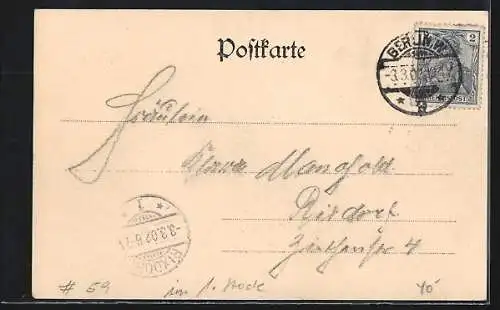 Postkarte
BERLIN W.
2
-3.3.02
Fräulein
Clara Mangold
Rixdorf
Ziethenstr 4
1
-3.3.02
RIXDORF
# 59
im 1. Stock